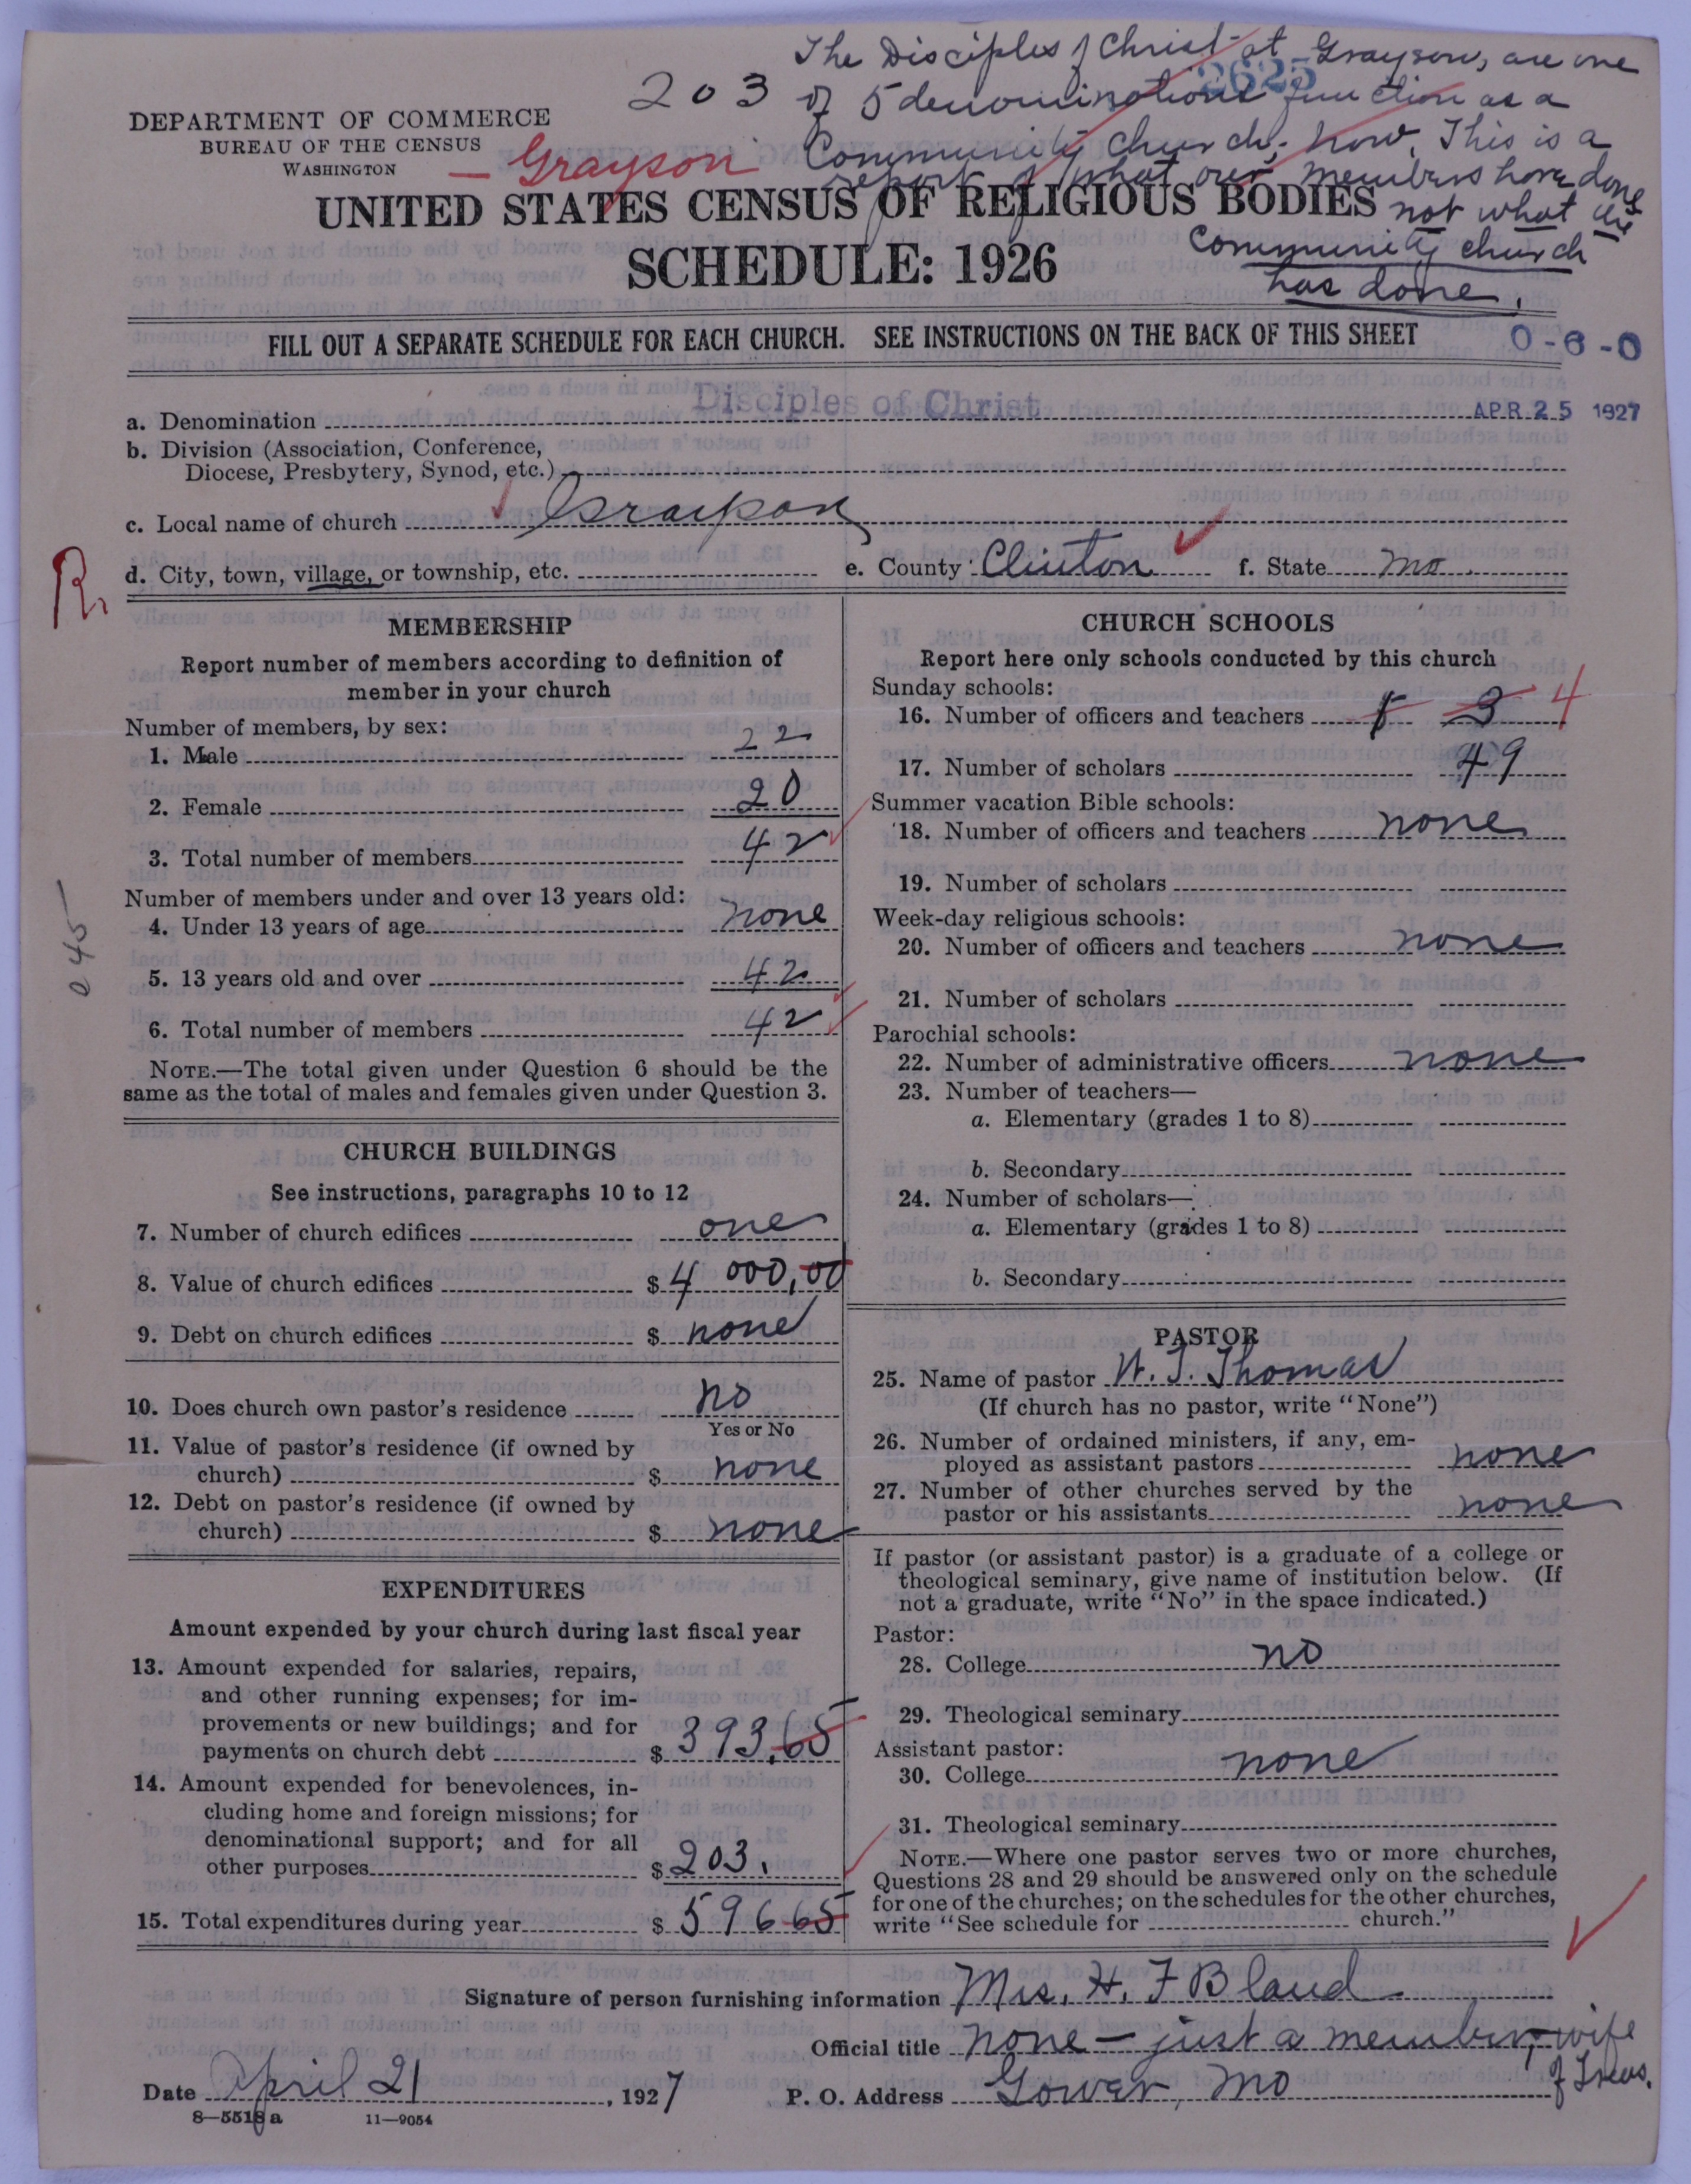 The Disciples of Christ at Grayson, are one
203 of 5 denominations function as a
2625
Community church, now. This is a
report of what our members have done
not what the
Community church
has done.
DEPARTMENT OF COMMERCE
BUREAU OF THE CENSUS
WASHINGTON
— Grayson
UNITED STATES CENSUS OF RELIGIOUS BODIES
SCHEDULE: 1926
FILL OUT A SEPARATE SCHEDULE FOR EACH CHURCH. SEE INSTRUCTIONS ON THE BACK OF THIS SHEET
0-6-0
a. Denomination Disciples of Christ APR 25 1927
b. Division (Association, Conference,
Diocese, Presbytery, Synod, etc.)
c. Local name of church Grayson
R.
d. City, town, village, or township, etc. e. County Clinton f. State Mo.
MEMBERSHIP
Report number of members according to definition of
member in your church
Number of members, by sex:
1. Male 22
2. Female 20
3. Total number of members 42
Number of members under and over 13 years old:
4. Under 13 years of age none
5. 13 years old and over 42
6. Total number of members 42
045
NOTE.—The total given under Question 6 should be the
same as the total of males and females given under Question 3.
CHURCH BUILDINGS
See instructions, paragraphs 10 to 12
7. Number of church edifices one
8. Value of church edifices $ 4 000,00
9. Debt on church edifices $ none
10. Does church own pastor's residence no
Yes or No
11. Value of pastor's residence (if owned by
church) $ none
12. Debt on pastor's residence (if owned by
church) $ none
EXPENDITURES
Amount expended by your church during last fiscal year
13. Amount expended for salaries, repairs,
and other running expenses; for im-
provements or new buildings; and for
payments on church debt $ 393.65
14. Amount expended for benevolences, in-
cluding home and foreign missions; for
denominational support; and for all
other purposes $ 203.
15. Total expenditures during year $ 596 65
CHURCH SCHOOLS
Report here only schools conducted by this church
Sunday schools:
16. Number of officers and teachers 3 4
17. Number of scholars 49
Summer vacation Bible schools:
18. Number of officers and teachers none
19. Number of scholars
Week-day religious schools:
20. Number of officers and teachers none
21. Number of scholars
Parochial schools:
22. Number of administrative officers none
23. Number of teachers—
a. Elementary (grades 1 to 8)
b. Secondary
24. Number of scholars—
a. Elementary (grades 1 to 8)
b. Secondary
PASTOR
25. Name of pastor W. J. Thomas
(If church has no pastor, write "None")
26. Number of ordained ministers, if any, em-
ployed as assistant pastors none
27. Number of other churches served by the
pastor or his assistants none
If pastor (or assistant pastor) is a graduate of a college or
theological seminary, give name of institution below. (If
not a graduate, write "No" in the space indicated.)
Pastor:
28. College no
29. Theological seminary
Assistant pastor:
30. College none
31. Theological seminary
NOTE.—Where one pastor serves two or more churches,
Questions 28 and 29 should be answered only on the schedule
for one of the churches; on the schedules for the other churches,
write "See schedule for church."
Signature of person furnishing information Mrs. H. F Bland
Official title none — just a member, wife
of Treas.
Date April 21, 1927 P. O. Address Gower, Mo
8—5518 a 11—9054